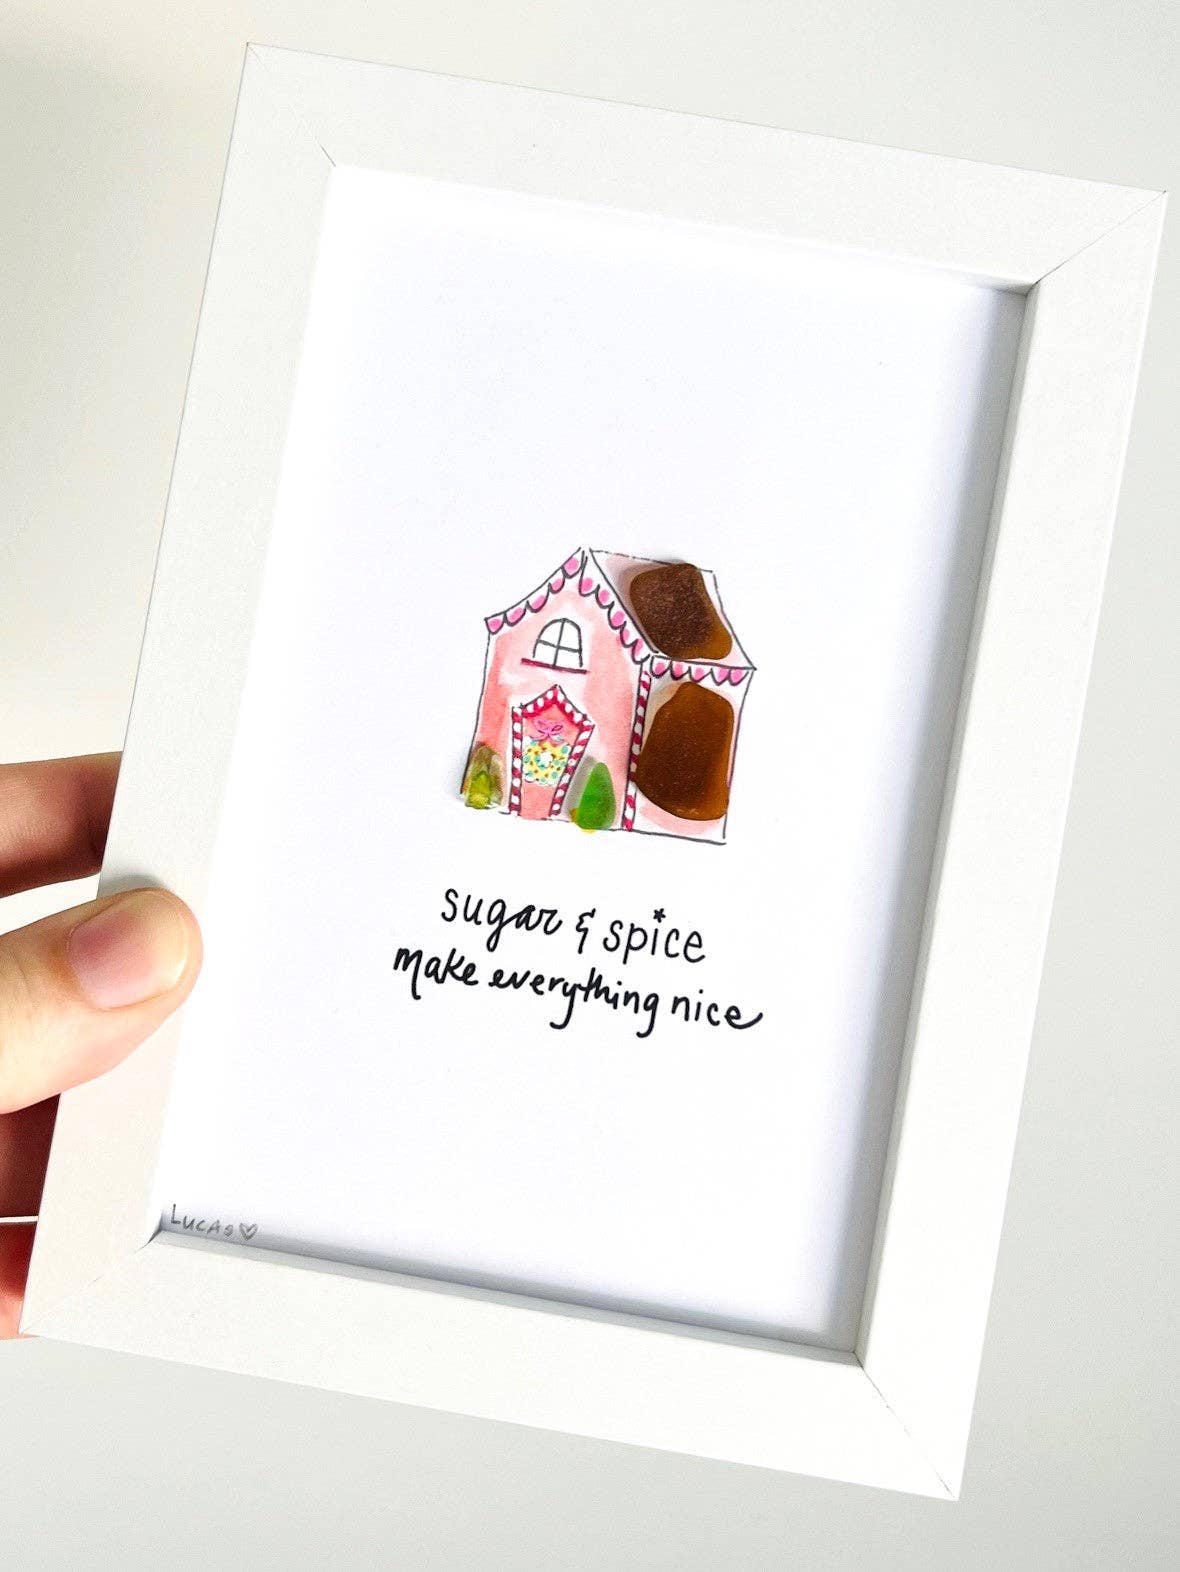 sugar & spice
make everything nice
LUCAS♡